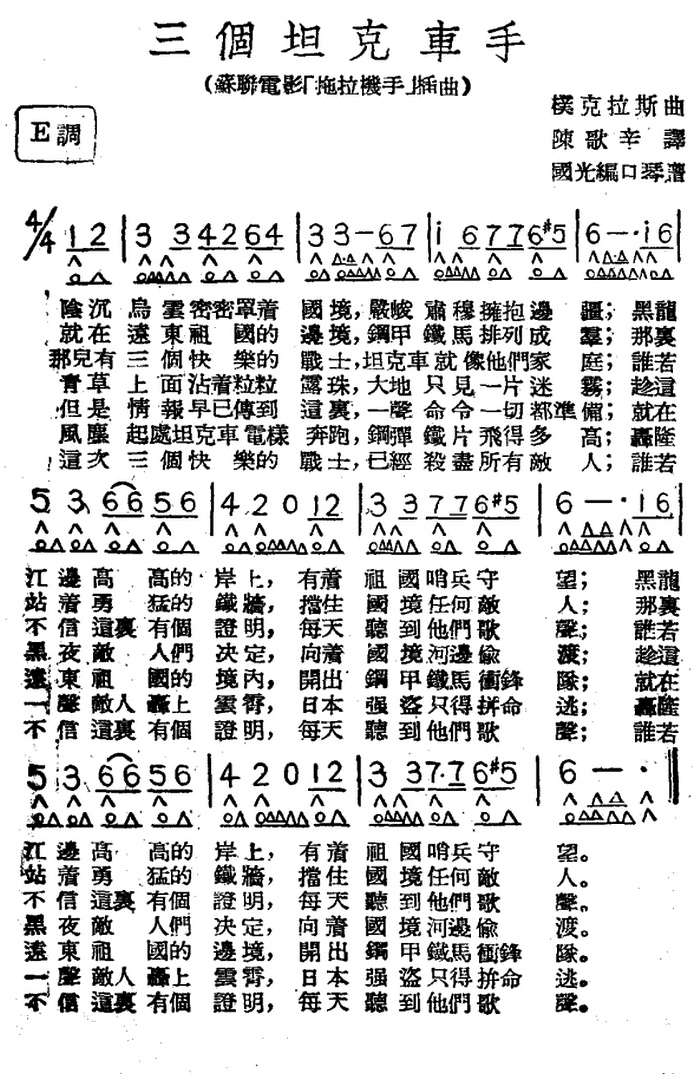 三個坦克車手
(蘇聯電影「拖拉機手」插曲)
E調
樸克拉斯曲
陳歌辛譯
國光編口琴譜
4/4 12 | 3 3 42 64 | 3 3 — 67 | i 6 77 6#5 | 6 — · i6
陰沉烏雲密密罩着國境，嚴峻肅穆擁抱邊疆；黑龍
就在遠東祖國的邊境，鋼甲鐵馬排列成羣；那裏
那兒有三個快樂的戰士，坦克車就像他們家庭；誰若
青草上面沾着粒粒露珠，大地只見一片迷霧；趁這
但是情報早已傳到這裏，一聲命令一切都準備；就在
風塵起處坦克車電樣奔跑，鋼彈鐵片飛得多高；轟隆
這次三個快樂的戰士，已經殺盡所有敵人；誰若
5 3· 66 56 | 4 2 0 12 | 3 33 77 6#5 | 6 — · i6
江邊高高的岸上，有着祖國哨兵守望；黑龍
站着勇猛的鐵牆，擋住國境任何敵人；那裏
不信這裏有個證明，每天聽到他們歌聲；誰若
黑夜敵人們決定，向着國境河邊偷渡；趁這
遠東祖國的境內，開出鋼甲鐵馬衝鋒隊；就在
一聲敵人轟上雲霄，日本强盜只得拚命逃；轟隆
不信這裏有個證明，每天聽到他們歌聲；誰若
5 3· 66 56 | 4 2 0 12 | 3 37·7 6#5 | 6 — ·
江邊高高的岸上，有着祖國哨兵守望。
站着勇猛的鐵牆，擋住國境任何敵人。
不信這裏有個證明，每天聽到他們歌聲。
黑夜敵人們決定，向着國境河邊偷渡。
遠東祖國的邊境，開出鋼甲鐵馬衝鋒隊。
一聲敵人轟上雲霄，日本强盜只得拚命逃。
不信這裏有個證明，每天聽到他們歌聲。